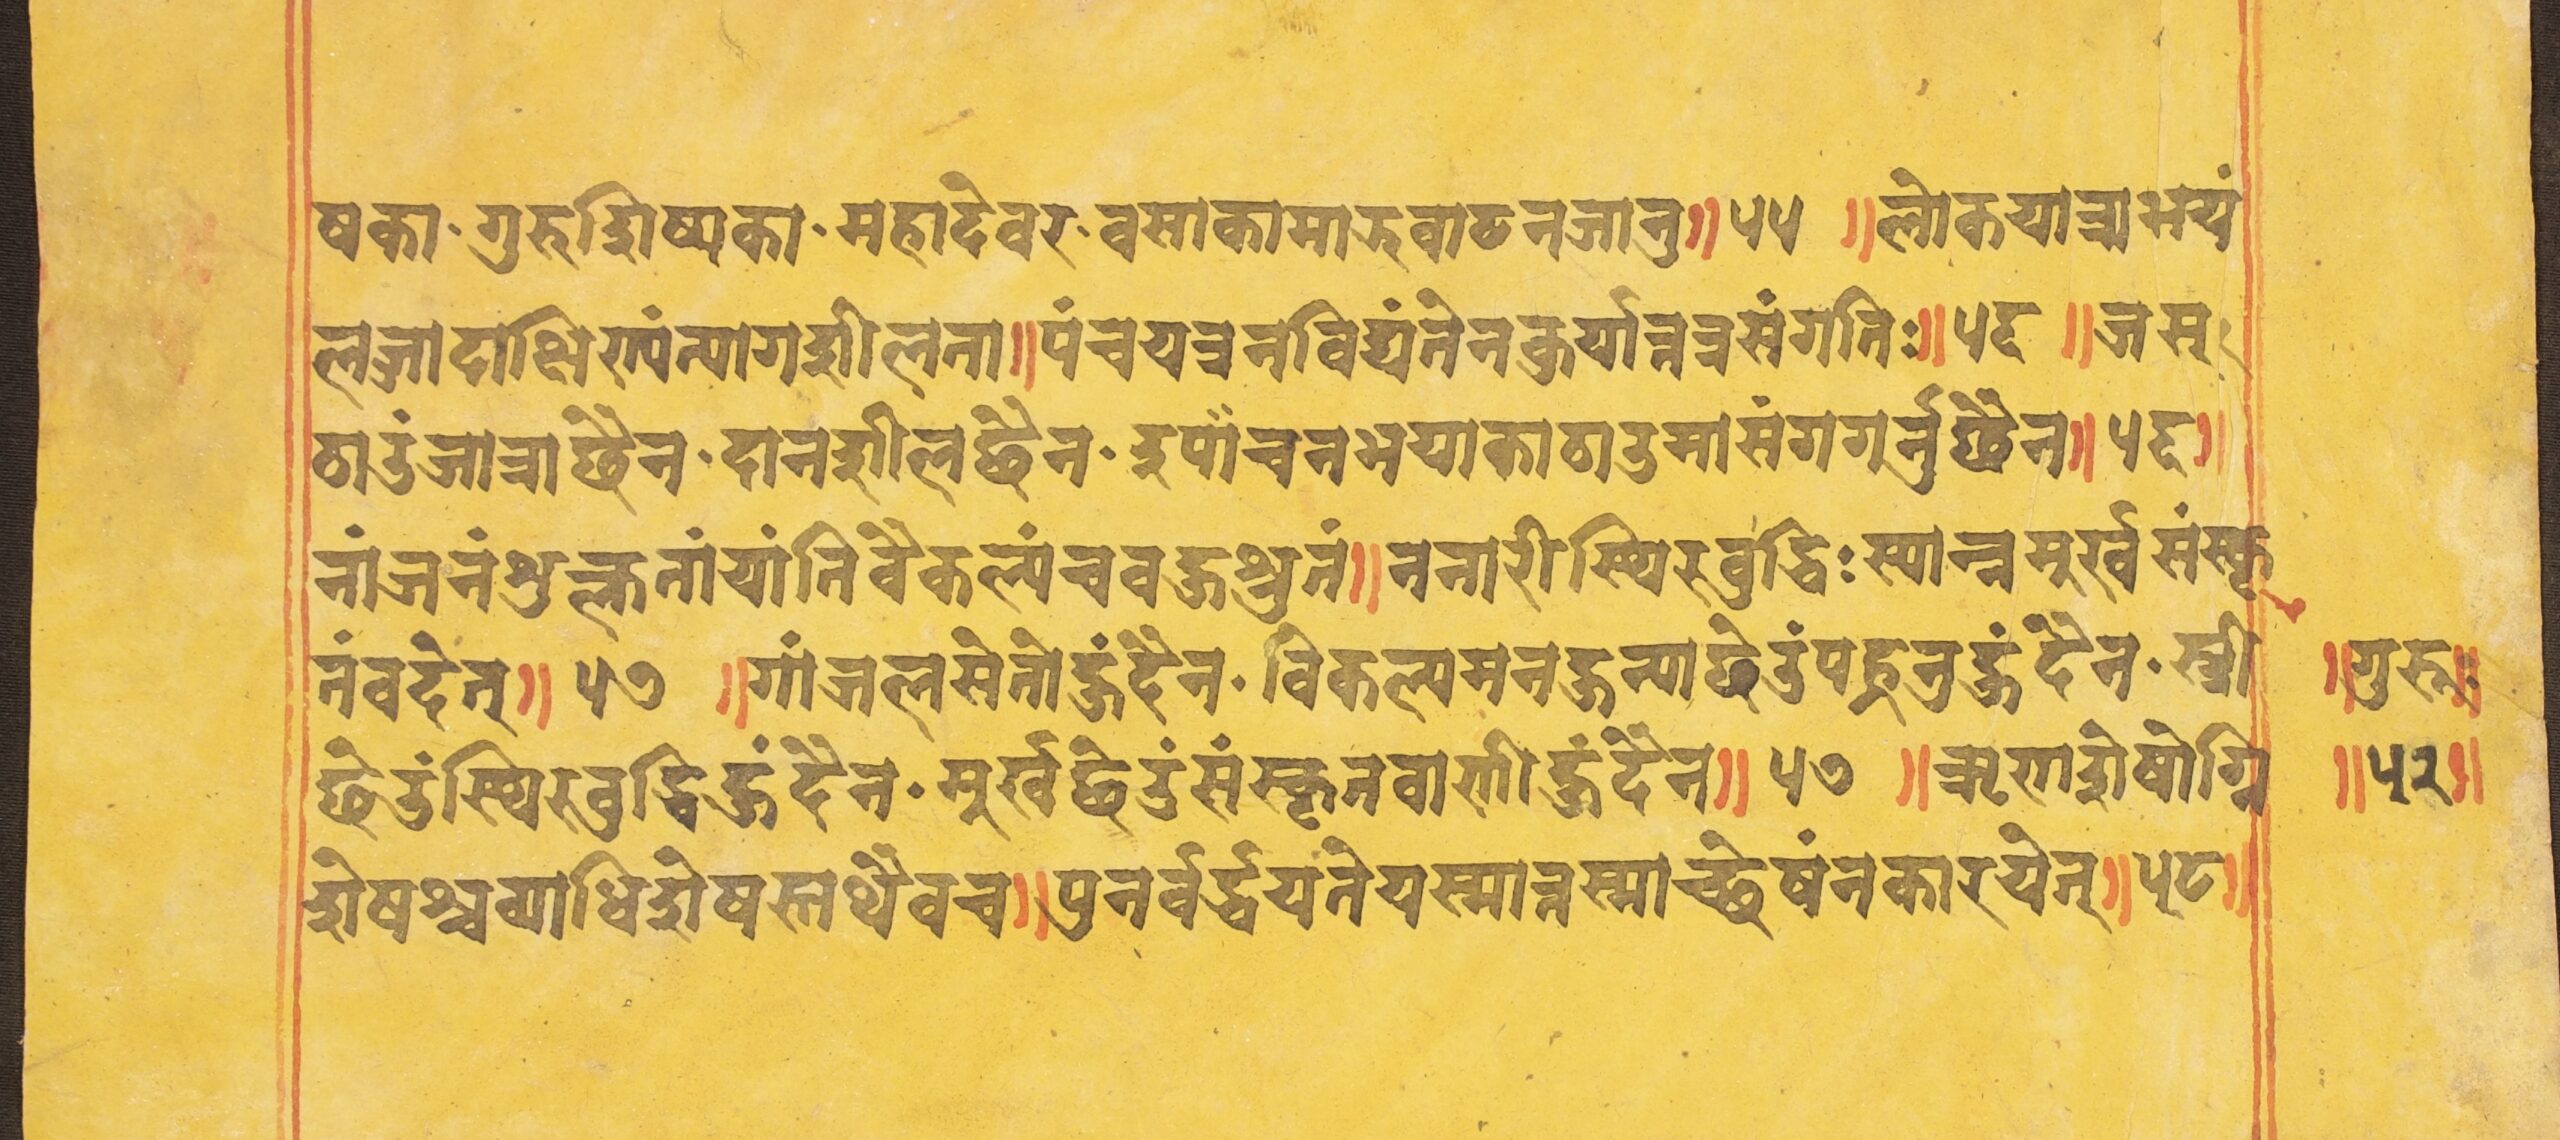 षका · गुरुशिष्यका · महादेवर · वसाकामाझवाटनजानु ॥ ५५ ॥ लोकयात्राभयं
लज्जादाक्षिण्यंत्यागशीलता ॥ पंचयत्रनविद्यंतेनकुर्यात्तत्रसंगतिः ॥ ५६ ॥ जस्
ठाउंजात्राछैन · दानशीलछैन · इपाँचनभयाकाठाउमासंगगर्नुछैन ॥ ५६ ॥
नांजनंशुल्कतांयांतिवैकल्पंचवहुश्रुतं ॥ ननारीस्थिरबुद्धिः स्यान्नमूर्खसंस्कृ
तंवदेत् ॥ ५७ ॥ गांजलसेतोहुंदैन · विकल्पमनहुन्याछेउंपहृनुहुंदैन · स्त्री
छेउंस्थिरबुद्धिहुंदैन · मूर्खछेउंसंस्कृतवाणीहुंदैन ॥ ५७ ॥ ऋणशेषोग्नि
शेषश्चव्याधिशेषस्तथैवच ॥ पुनर्वर्द्धयतेयस्मात्तस्माच्छेषंनकारयेत् ॥ ५८ ॥
॥ गुरुः ॥
॥ ५२ ॥